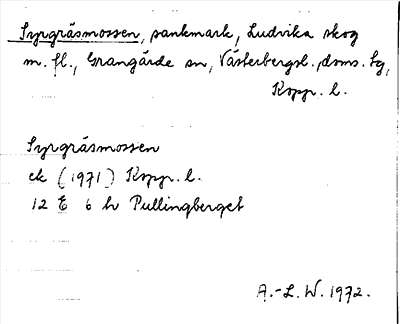 Syrgräsmossen, sankmark, Ludvika skog
m. fl., Grangärde sn, Västerbergsl. doms. tg,
Kopp. l.
Syrgräsmossen
ek (1971) Kopp. l.
12 E 6 h Pullingberget
A.-L. W. 1972.